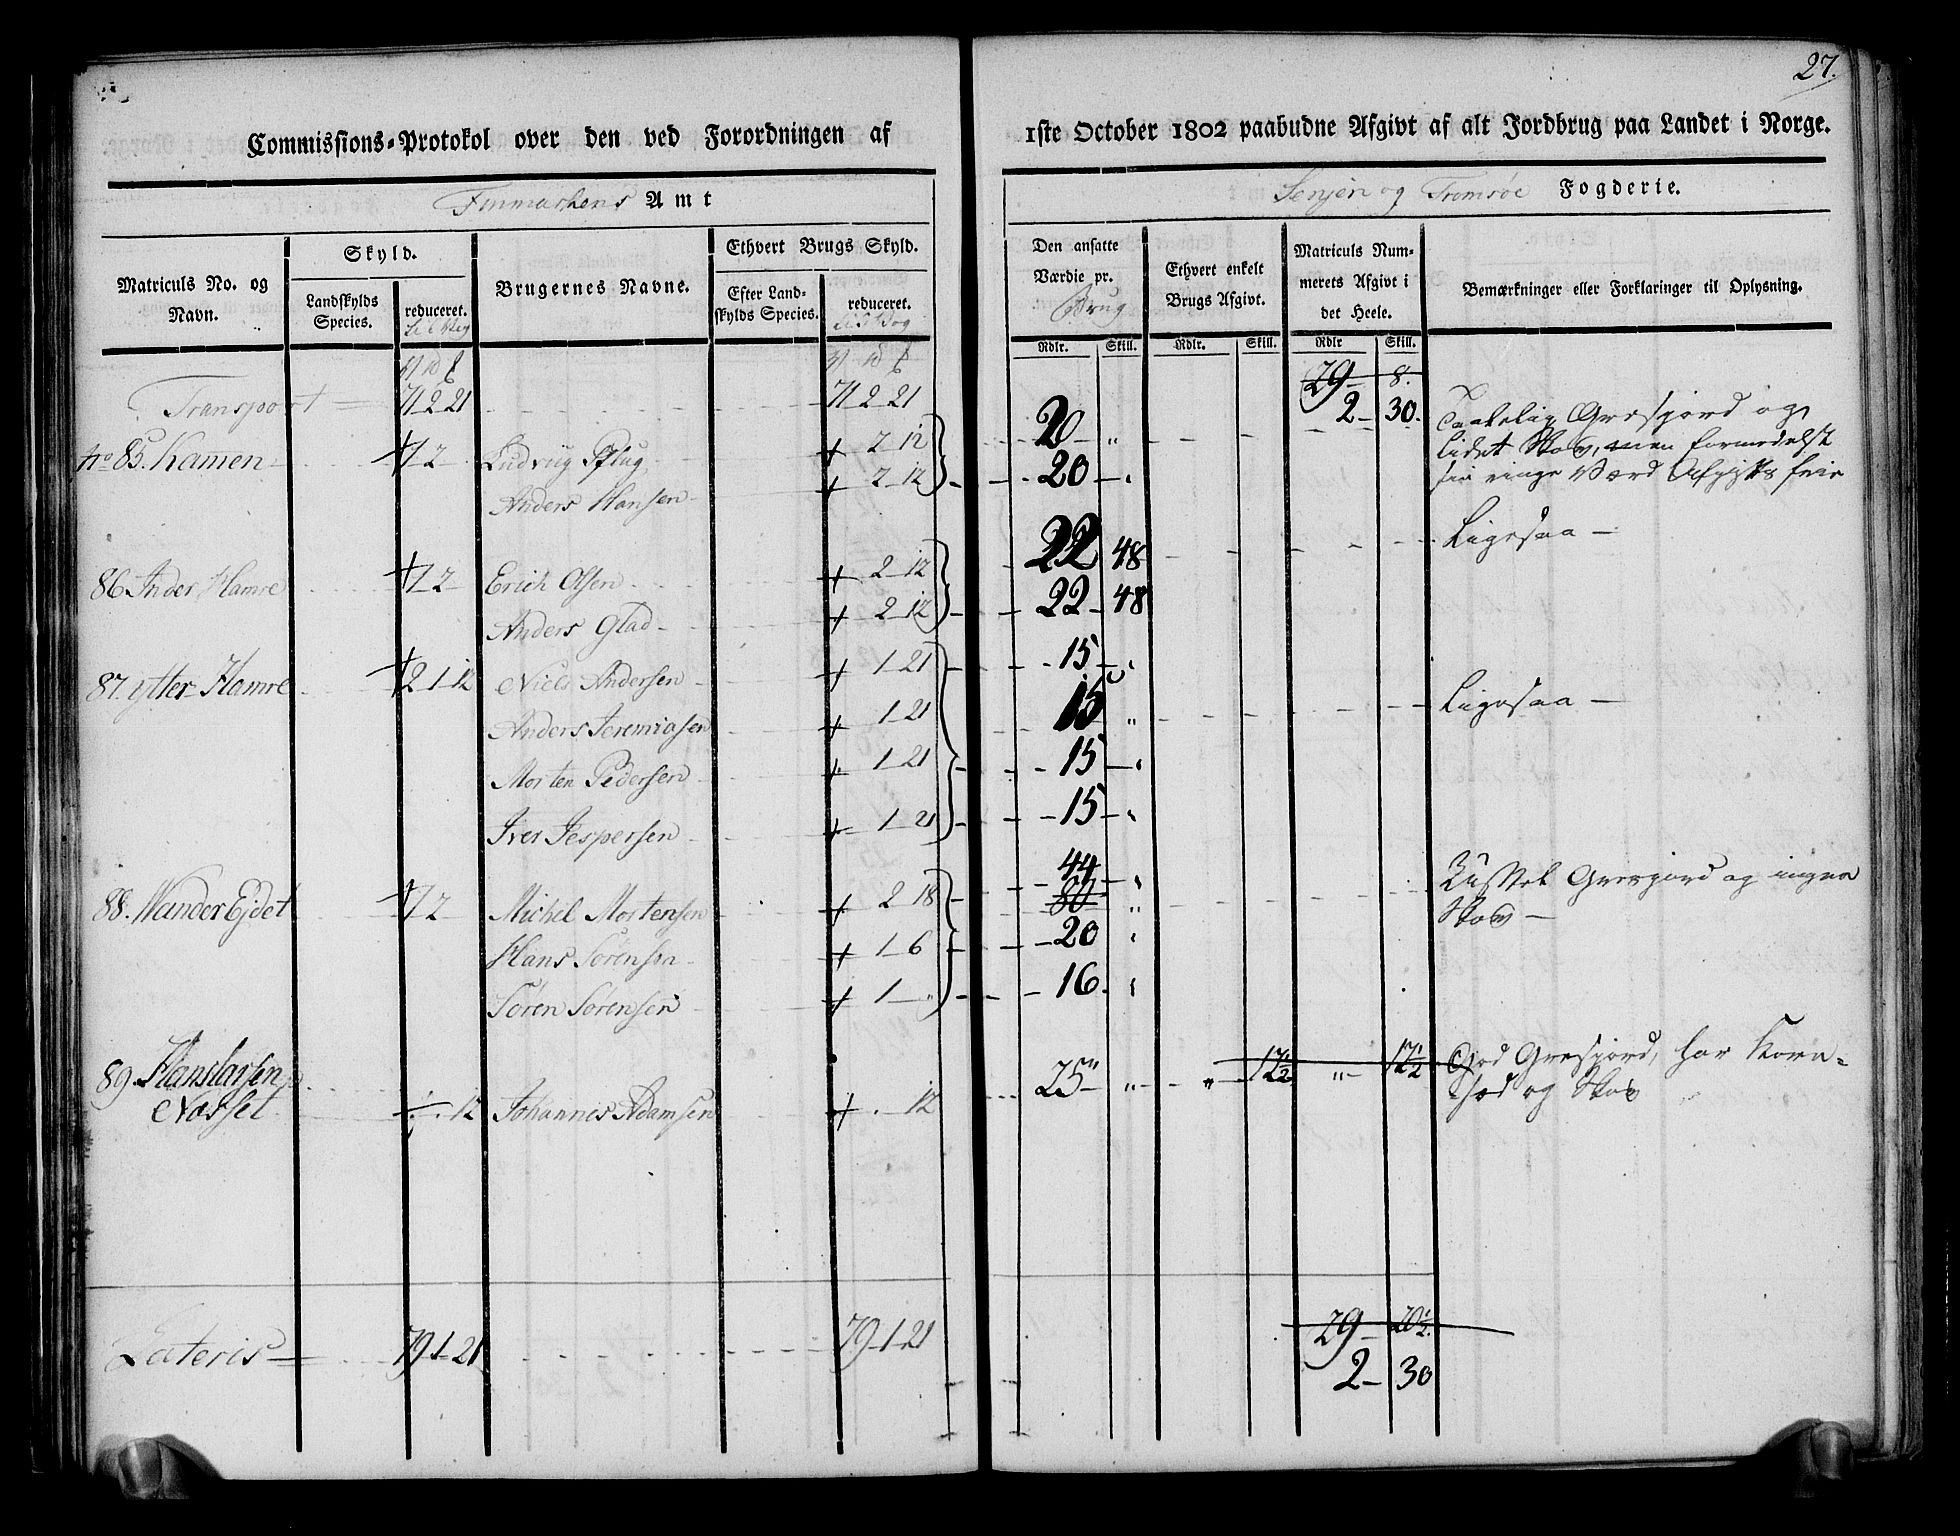 27.
Commissions-Protokol over den ved Forordningen af 1ste October 1802 paabudne Afgivt af alt Jordbrug paa Landet i Norge.
Finmarkens Amt
Senjen og Tromsøe Fogderie.
Matriculs No. og Navn.
Skyld.
Landskylds Species.
reduceret.
Brugernes Navne.
Ethvert Brugs Skyld.
Efter Landskylds Species.
reduceret.
Den ansatte Værdie pr. Brug
Ethvert enkelt Brugs Afgivt.
Matriculs Nummerets Afgivt i det Heele.
Bemærkninger eller Forklaringer til Oplysning.
Rdlr. Skill. Rdlr. Skill. Rdlr Skill.
29 - 8.
Transport 71 2 21 71 2 21 2 - 30.
No 85. Kamen 1 2 Ludvig Pflug 2 12 20 "
Taalelig Græsjord og
lidet Skov, men formedelst
sin ringe Værd Afgifts frie
Anders Hansen 2 12 20
86 Inder Hamre 1 2 Erich Olsen 2 12 22 48 Ligesaa
Anders Glad 2 12 22 48
87. ytter Hamre 2 1 12 Niels Andersen 1 21 15
Anders Jeremiasen 1 21 15 " Ligesaa
Morten Pedersen 1 21 15
Iver Jespersen 1 21 15
44
88. Wander Ejdet 1 2 Michel Mortensen 2 18 80 "
Græsjord og ingen
Skov
Hans Sørensen 1 6 20
Søren Sørensen 1 16
89. Hans Larsen
Næsset 12 Johannes Adamsen 12 25 " " 17 1/2 " 17 1/2
God Græsjord, har Korn-
sæd og Skov
29 - 20 1/2
Lateris 79 1 21 79 1 21
2 - 30